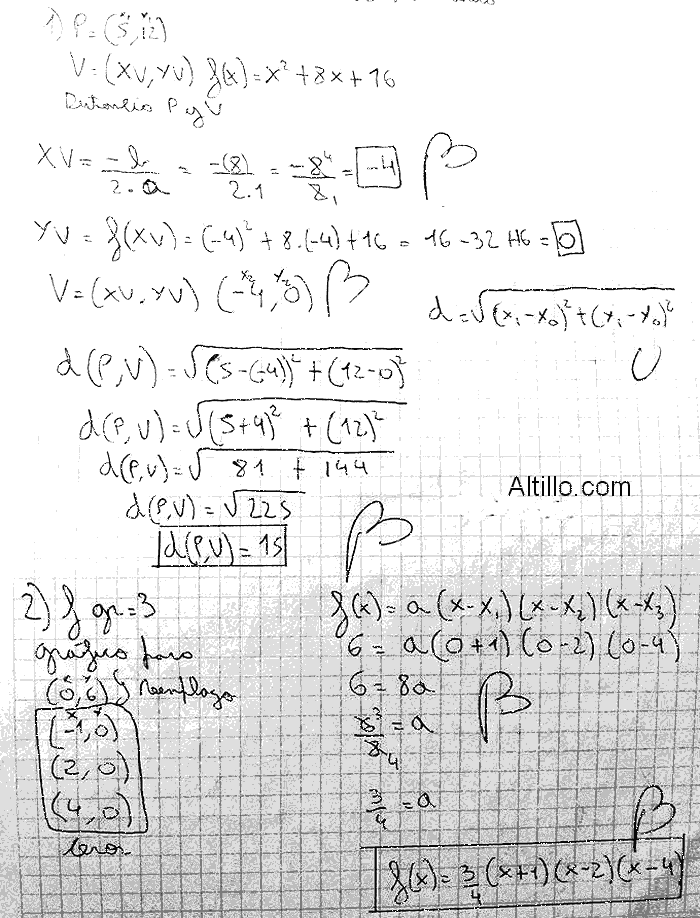 1) P = (5, 12)
V = (XV, YV) f(x) = x² + 8x + 16
Distancia P y V
XV = -b / 2·a = -(8) / 2·1 = -8 4 / 8 1 = -4
YV = f(XV) = (-4)² + 8·(-4) + 16 = 16 - 32 + 16 = 0
V = (XV, YV) (-4, 0)
d = √(x₁ - x₀)² + (y₁ - y₀)²
d(P,V) = √(5-(-4))² + (12-0)²
d(P,V) = √(5+4)² + (12)²
d(P,V) = √81 + 144
Altillo.com
d(P,V) = √225
d(P,V) = 15
2) f gr=3
gráfico pasa
(0,6) y reemplazo
(-1, 0)
(2, 0)
(4, 0)
ceros
f(x) = a (x-x₁) (x-x₂) (x-x₃)
6 = a (0+1) (0-2) (0-4)
6 = 8a
6 3 / 8 4 = a
3/4 = a
f(x) = 3/4 (x+1) (x-2) (x-4)